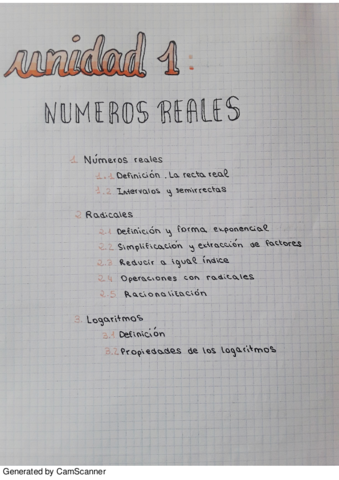 unidad 1:
NUMEROS REALES
1. Números reales
1.1 Definición. La recta real
1.2 Intervalos y semirrectas
2. Radicales
2.1 Definición y forma exponencial
2.2 Simplificación y extracción de factores
2.3 Reducir a igual índice
2.4 Operaciones con radicales
2.5 Racionalización
3. Logaritmos
3.1 Definición
3.2 Propiedades de los logaritmos
Generated by CamScanner